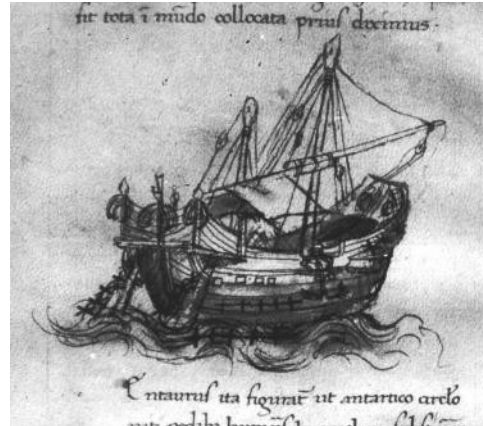 sit tota ī mūdo collocata prius diximus.
Entaurus ita figurat̄ ut antartico circlo